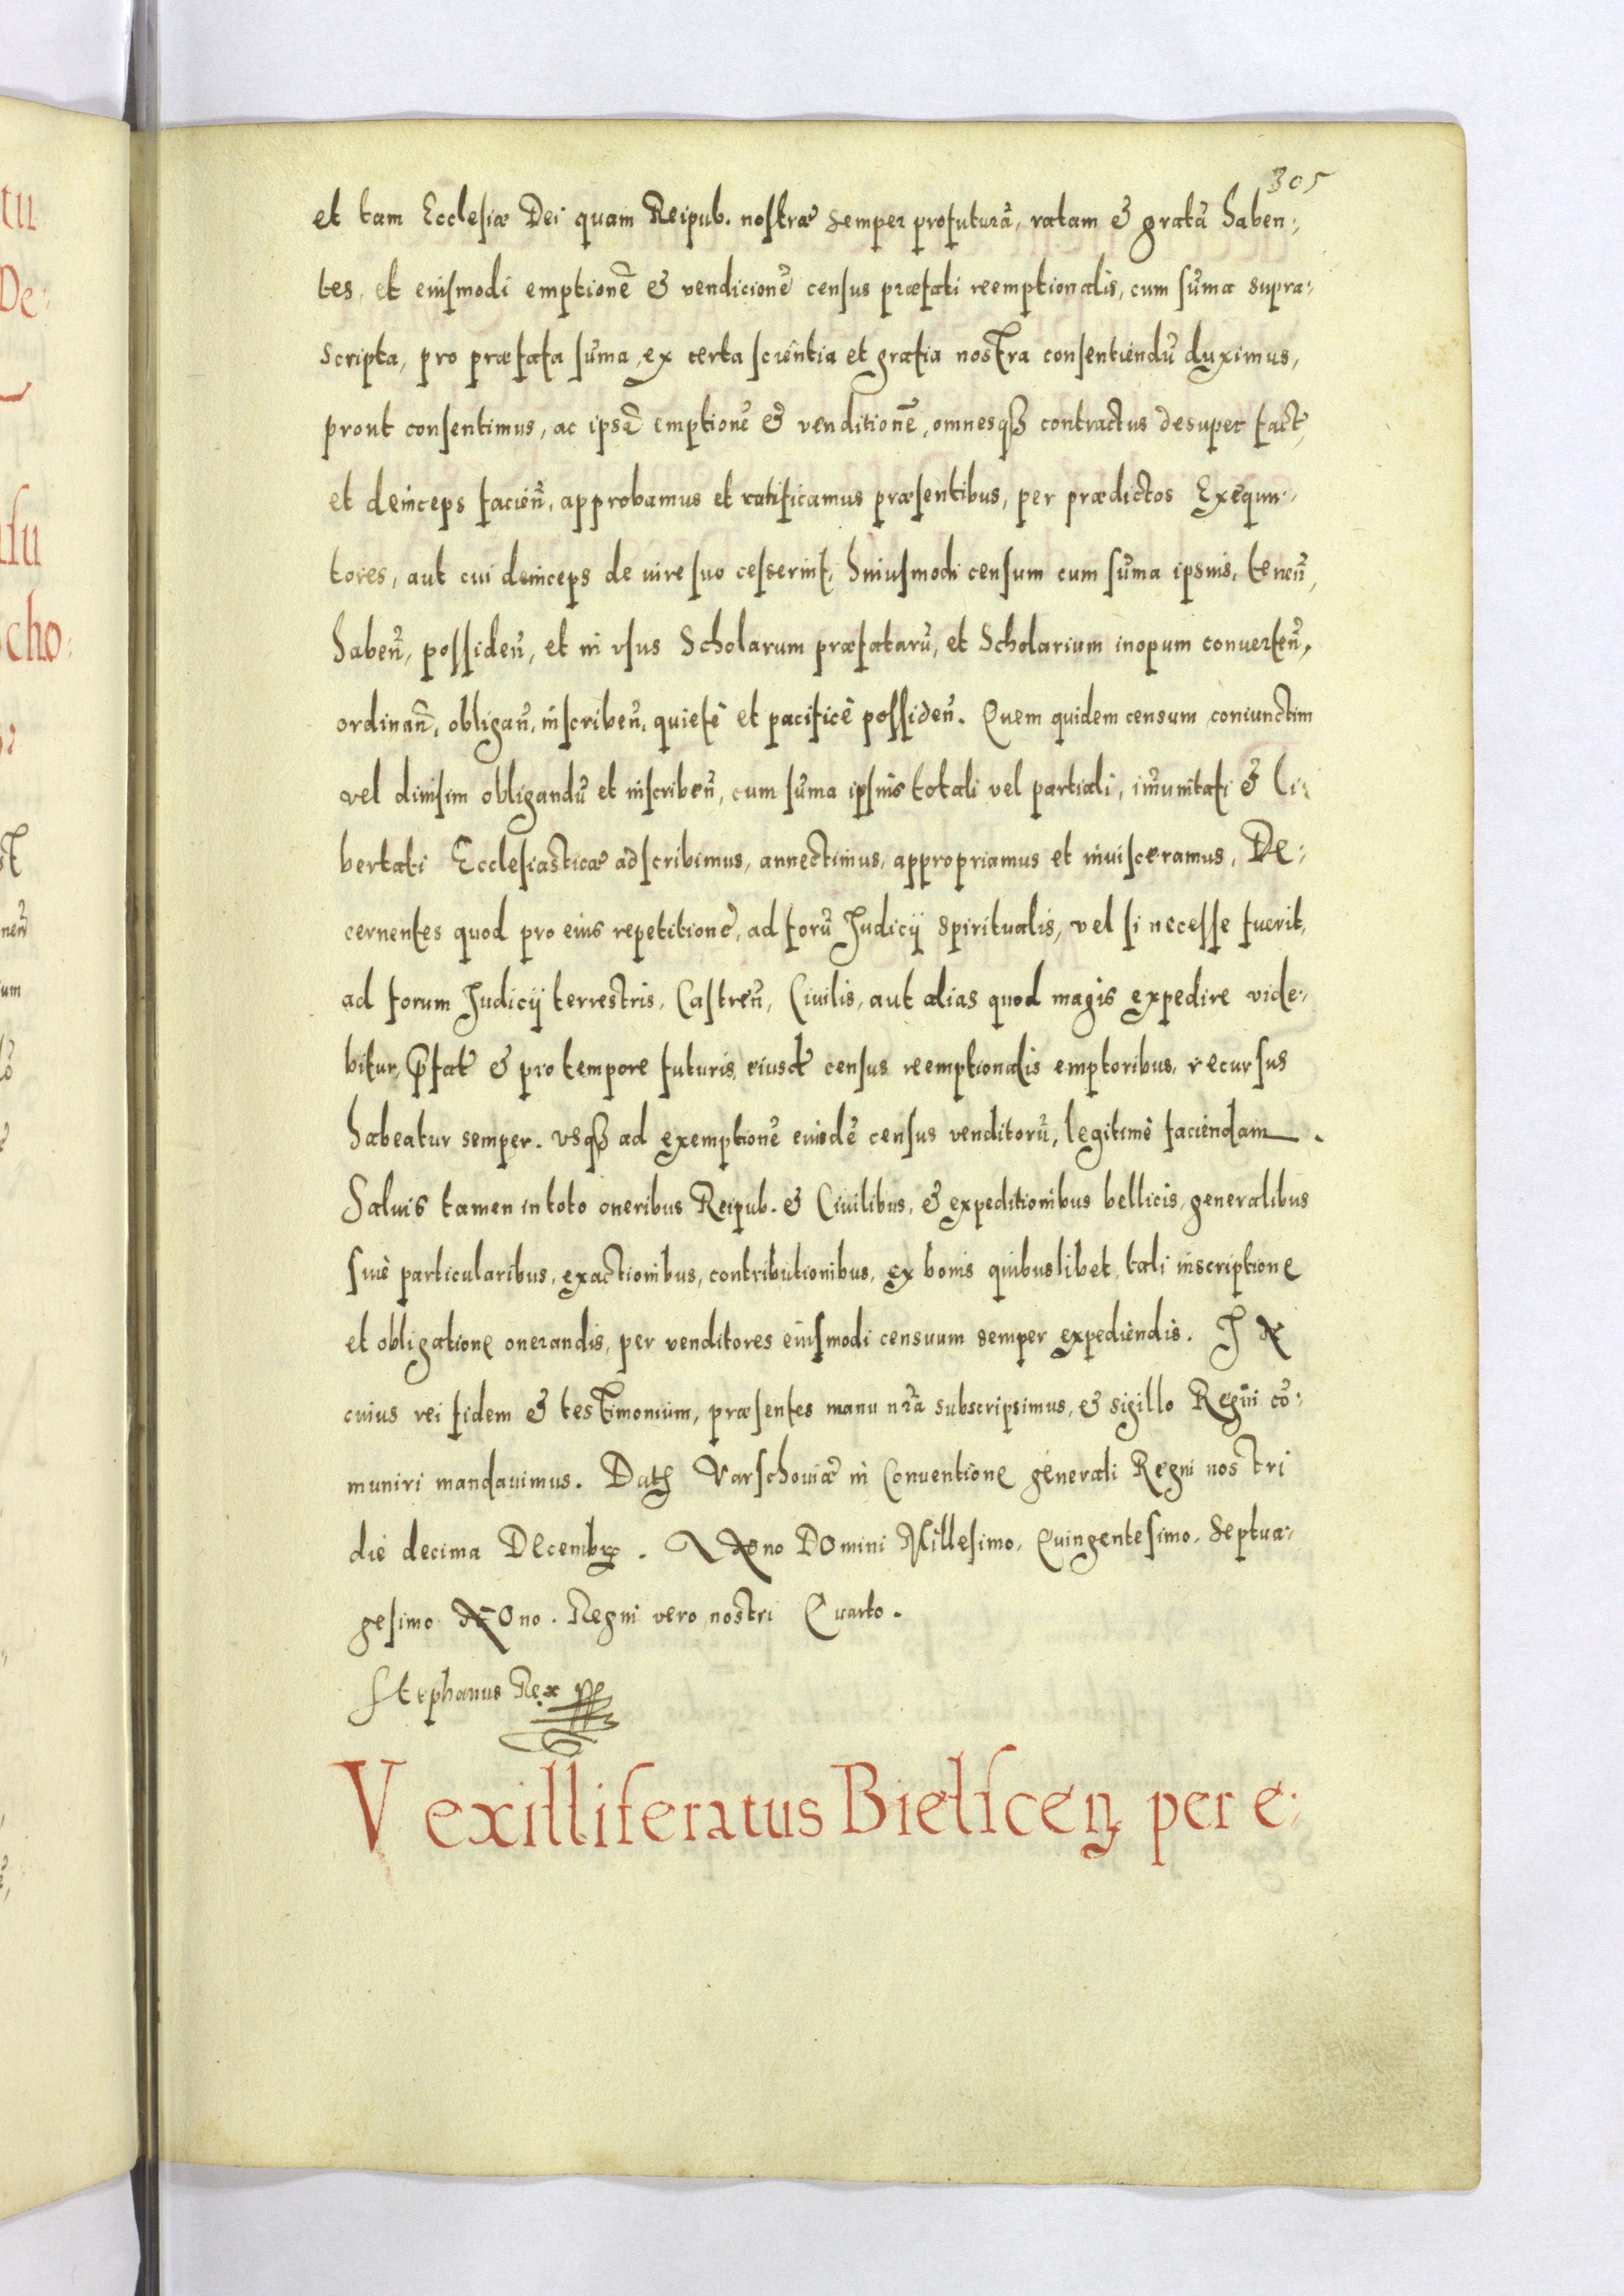 305
et tam Ecclesiæ Dei quam Reipub. nostræ semper profuturā, ratam & gratā haben:
tes, et eiusmodi emptionē & vendicionē census præfati reemptionalis, cum sūma supra:
scripta, pro præfata sūma, ex certa scientia et gratia nostra consentiendū duximus,
prout consentimus, ac ipsā emptionē & venditionē, omnesqȝ contractus desuper fact,
et deinceps facien̄, approbamus et ratificamus præsentibus, per prædictos Exequu:
tores, aut cui deinceps de iure suo cesserint, huiusmodi censum cum sūma ipsius, tenen̄,
haben̄, possiden̄, et in vsus Scholarum præfatarū, et Scholarium inopum conuerten̄,
ordinan̄, obligan̄, inscriben̄, quietè et pacificè possiden̄. Quem quidem censum coniunctim
vel diuisim obligandū et inscriben̄, cum sūma ipsius totali vel partiali, im̄unitati & li:
bertati Ecclesiasticæ adscribimus, annectimus, appropriamus et inuisceramus, De:
cernentes quod pro eius repetitione, ad forū Iudicij spiritualis, vel si necesse fuerit,
ad forum Iudicij terrestris, Castren̄, Ciuilis, aut alias quod magis expedire vide:
bitur, p̄fat & pro tempore futuris, eiusd census reemptionalis emptoribus, recursus
habeatur semper. vsqȝ ad exemptionē eiusdē census venditorū, legitimè faciendam.
Saluis tamen in toto oneribus Reipub. & Ciuilibus, & expeditionibus bellicis, generalibus
siuè particularibus, exactionibus, contributionibus, ex bonis quibuslibet, tali inscriptione
et obligatione onerandis, per venditores eiusmodi censuum semper expediendis. In
cuius rei fidem & testimonium, præsentes manu nr̄a subscripsimus, & sigillo Regni cō:
muniri mandauimus. Datȝ Varschouiæ in Conuentione generali Regni nostri
die decima Decembr. Anno Domini Millesimo, Quingentesimo, Septua:
gesimo Nono. Regni vero nostri Quarto.
Stephanus Rex
Vexilliferatus Bielscen per e: